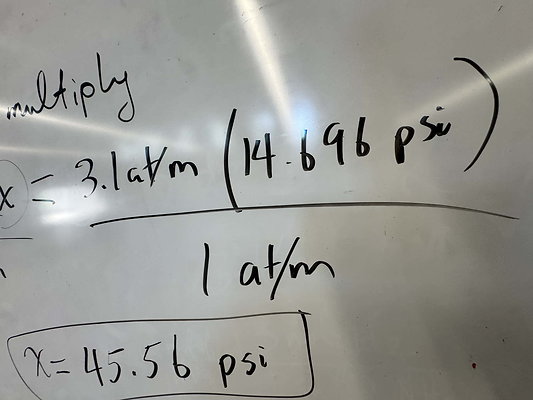 multiply
x = 3.1 atm (14.696 psi)
1 atm
x = 45.56 psi